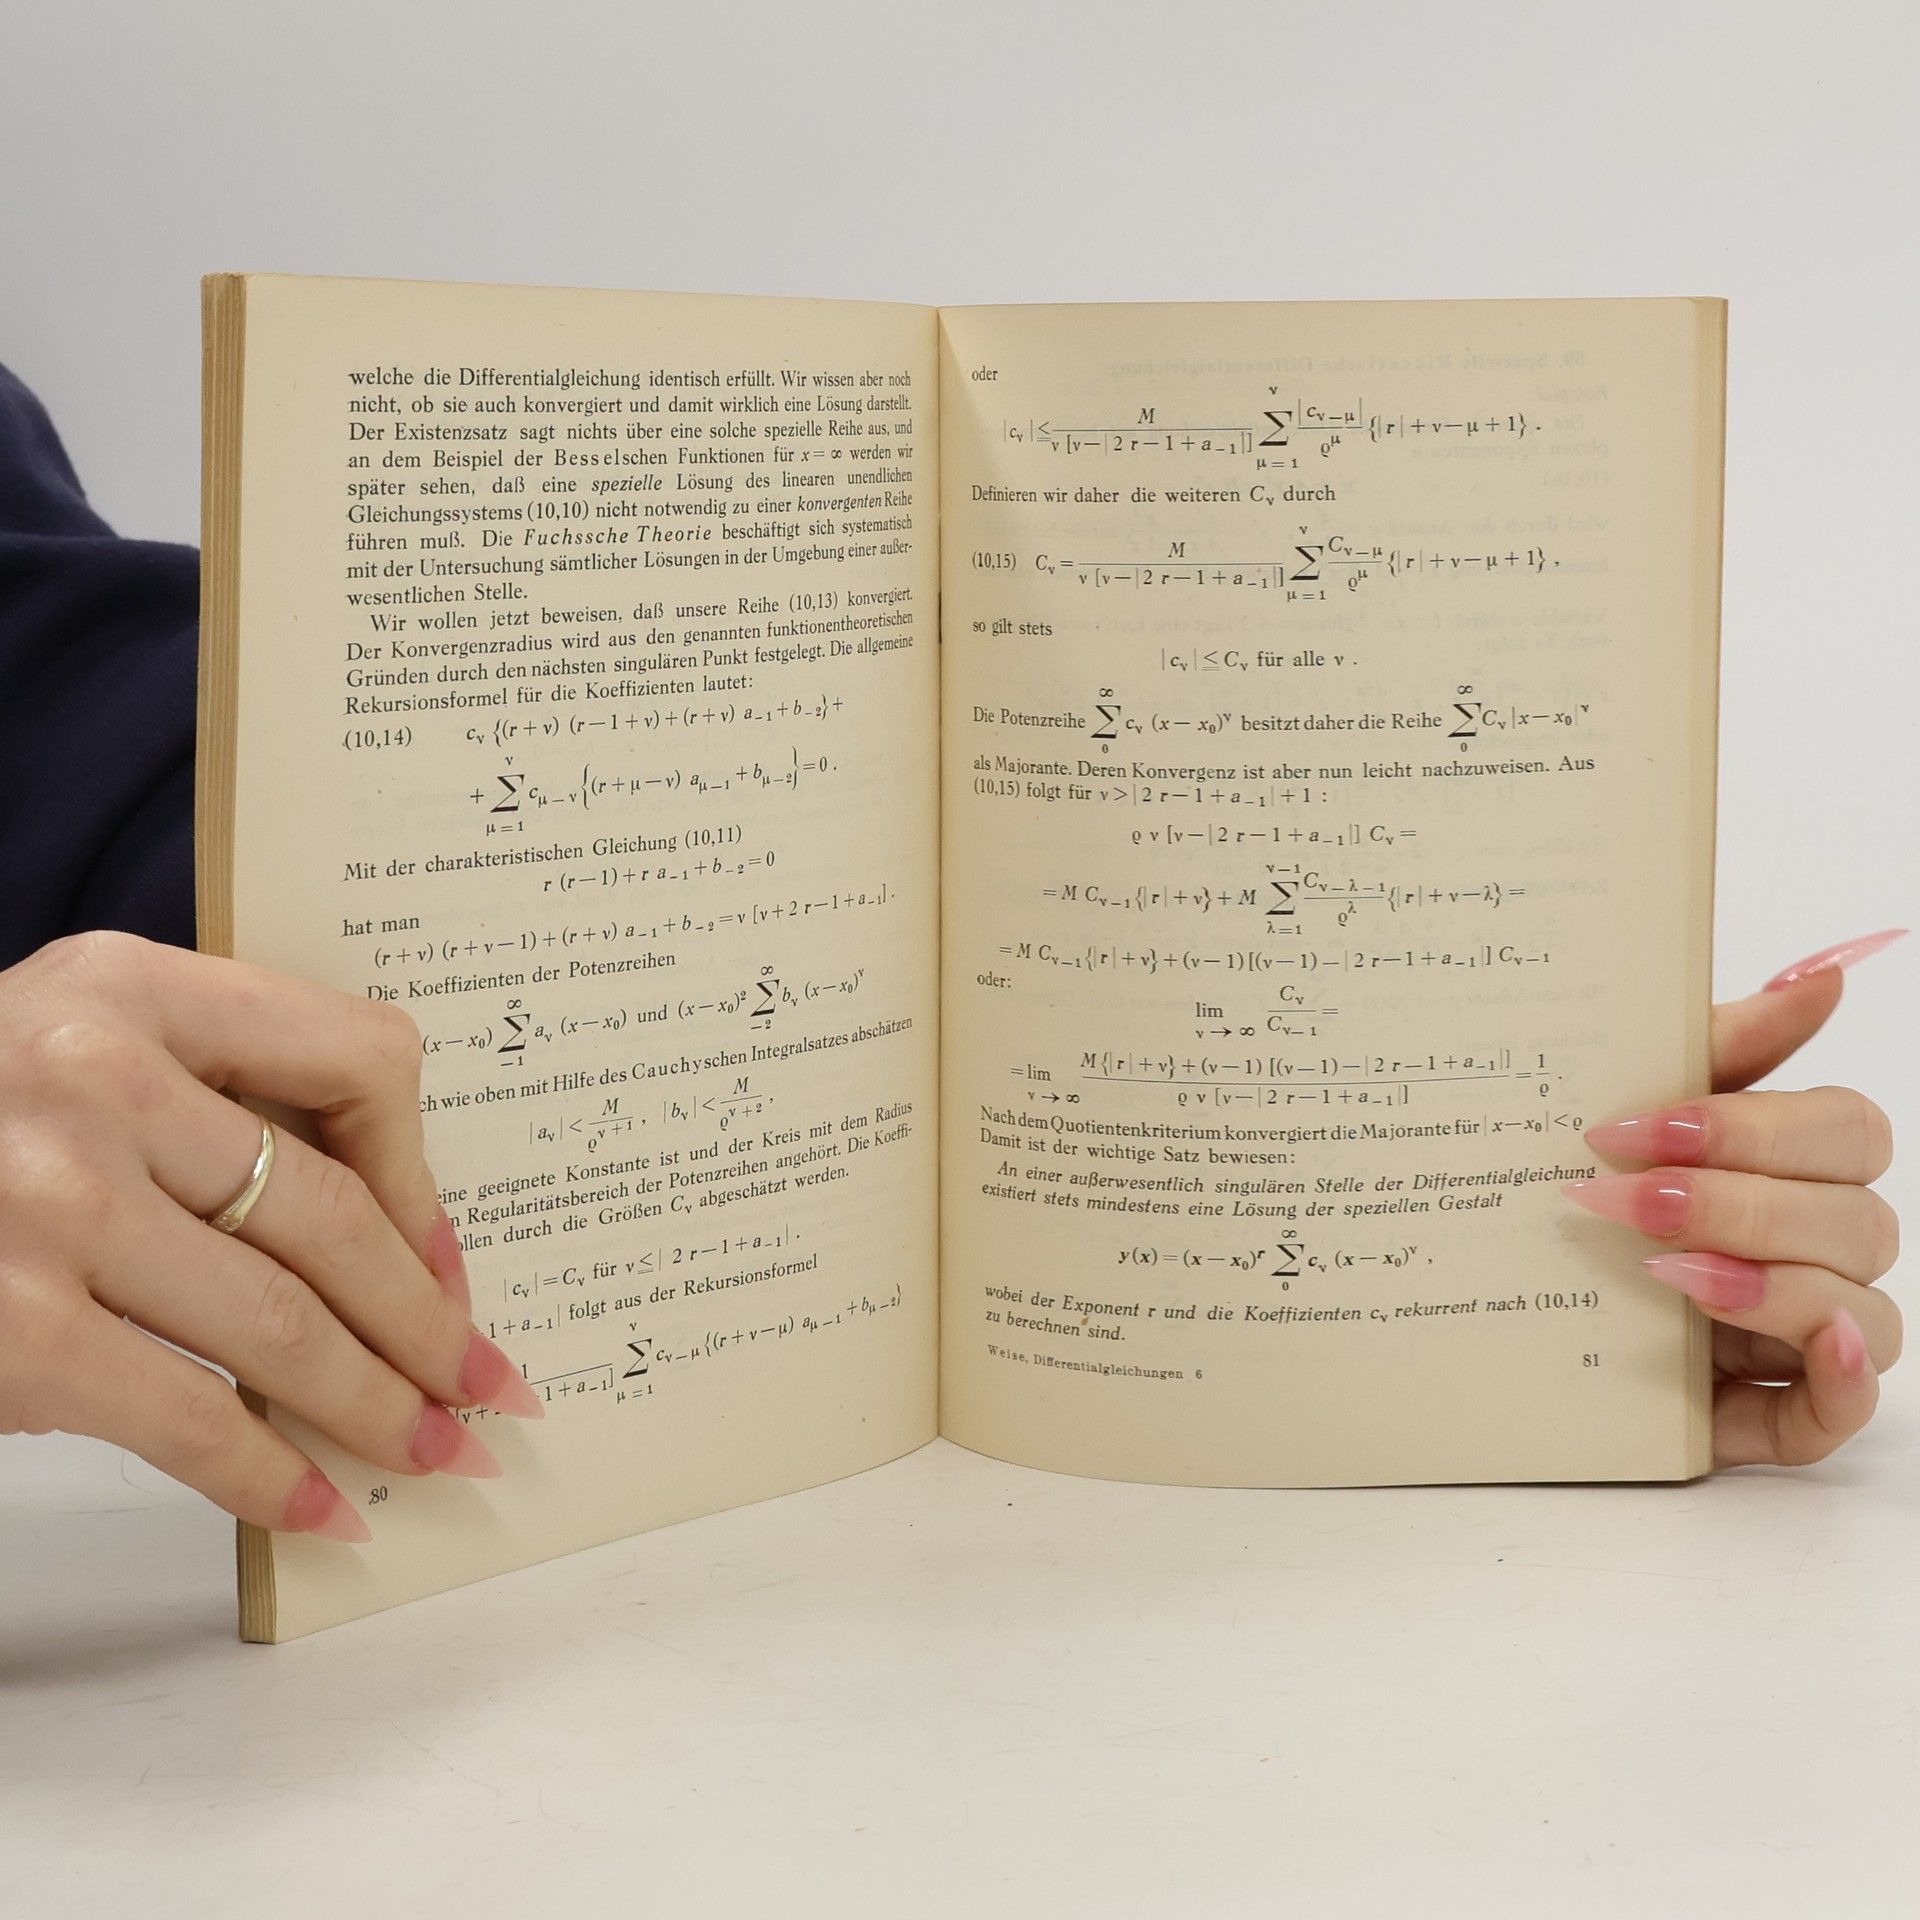 welche die Differentialgleichung identisch erfüllt. Wir wissen aber noch
nicht, ob sie auch konvergiert und damit wirklich eine Lösung darstellt.
Der Existenzsatz sagt nichts über eine solche spezielle Reihe aus, und
an dem Beispiel der Besselschen Funktionen für x = ∞ werden wir
später sehen, daß eine spezielle Lösung des linearen unendlichen
Gleichungssystems (10,10) nicht notwendig zu einer konvergenten Reihe
führen muß. Die Fuchssche Theorie beschäftigt sich systematisch
mit der Untersuchung sämtlicher Lösungen in der Umgebung einer außer-
wesentlichen Stelle.
Wir wollen jetzt beweisen, daß unsere Reihe (10,13) konvergiert.
Der Konvergenzradius wird aus den genannten funktionentheoretischen
Gründen durch den nächsten singulären Punkt festgelegt. Die allgemeine
Rekursionsformel für die Koeffizienten lautet:
(10,14) c_ν {(r+ν) (r−1+ν)+(r+ν) a_{−1}+b_{−2}}+
+ ∑_{μ=1}^{ν} c_{μ−ν} {(r+μ−ν) a_{μ−1}+b_{μ−2}}=0 .
Mit der charakteristischen Gleichung (10,11)
r (r−1)+r a_{−1}+b_{−2}=0
hat man
(r+ν) (r+ν−1)+(r+ν) a_{−1}+b_{−2}=ν [ν+2 r−1+a_{−1}] .
Die Koeffizienten der Potenzreihen
(x−x₀) ∑_{−1}^{∞} a_ν (x−x₀) und (x−x₀)² ∑_{−2}^{∞} b_ν (x−x₀)^ν
ch wie oben mit Hilfe des Cauchyschen Integralsatzes abschätzen
|a_ν| < M/ϱ^{ν+1} , |b_ν| < M/ϱ^{ν+2} ,
eine geeignete Konstante ist und der Kreis mit dem Radius
n Regularitätsbereich der Potenzreihen angehört. Die Koeffi-
ollen durch die Größen C_ν abgeschätzt werden.
|c_ν|=C_ν für ν≦| 2 r−1+a_{−1}| .
1+a_{−1}| folgt aus der Rekursionsformel
1/[ν+ 1+a_{−1}] ∑_{μ=1}^{ν} c_{ν−μ} {(r+ν−μ) a_{μ−1}+b_{μ−2}}
80
oder
|c_ν| ≦ M/(ν [ν−| 2 r−1+a_{−1}|]) ∑_{μ=1}^{ν} |c_{ν−μ}|/ϱ^μ {|r|+ν−μ+1} .
Definieren wir daher die weiteren C_ν durch
(10,15) C_ν = M/(ν [ν−| 2 r−1+a_{−1}|]) ∑_{μ=1}^{ν} C_{ν−μ}/ϱ^μ {|r|+ν−μ+1} ,
so gilt stets
|c_ν| ≦ C_ν für alle ν .
Die Potenzreihe ∑_{0}^{∞} c_ν (x−x₀)^ν besitzt daher die Reihe ∑_{0}^{∞} C_ν |x−x₀|^ν
als Majorante. Deren Konvergenz ist aber nun leicht nachzuweisen. Aus
(10,15) folgt für ν>| 2 r−1+a_{−1}|+1 :
ϱ ν [ν−| 2 r−1+a_{−1}|] C_ν =
= M C_{ν−1} {|r|+ν} + M ∑_{λ=1}^{ν−1} C_{ν−λ−1}/ϱ^λ {|r|+ν−λ} =
= M C_{ν−1} {|r|+ν}+(ν−1) [(ν−1)−| 2 r−1+a_{−1}|] C_{ν−1}
oder:
lim_{ν→∞} C_ν/C_{ν−1} =
= lim_{ν→∞} (M {|r|+ν}+(ν−1) [(ν−1)−| 2 r−1+a_{−1}|])/(ϱ ν [ν−| 2 r−1+a_{−1}|]) = 1/ϱ .
Nach dem Quotientenkriterium konvergiert die Majorante für |x−x₀|<ϱ
Damit ist der wichtige Satz bewiesen:
An einer außerwesentlich singulären Stelle der Differentialgleichung
existiert stets mindestens eine Lösung der speziellen Gestalt
y(x)=(x−x₀)^r ∑_{0}^{∞} c_ν (x−x₀)^ν ,
wobei der Exponent r und die Koeffizienten c_ν rekurrent nach (10,14)
zu berechnen sind.
Weise, Differentialgleichungen 6
81